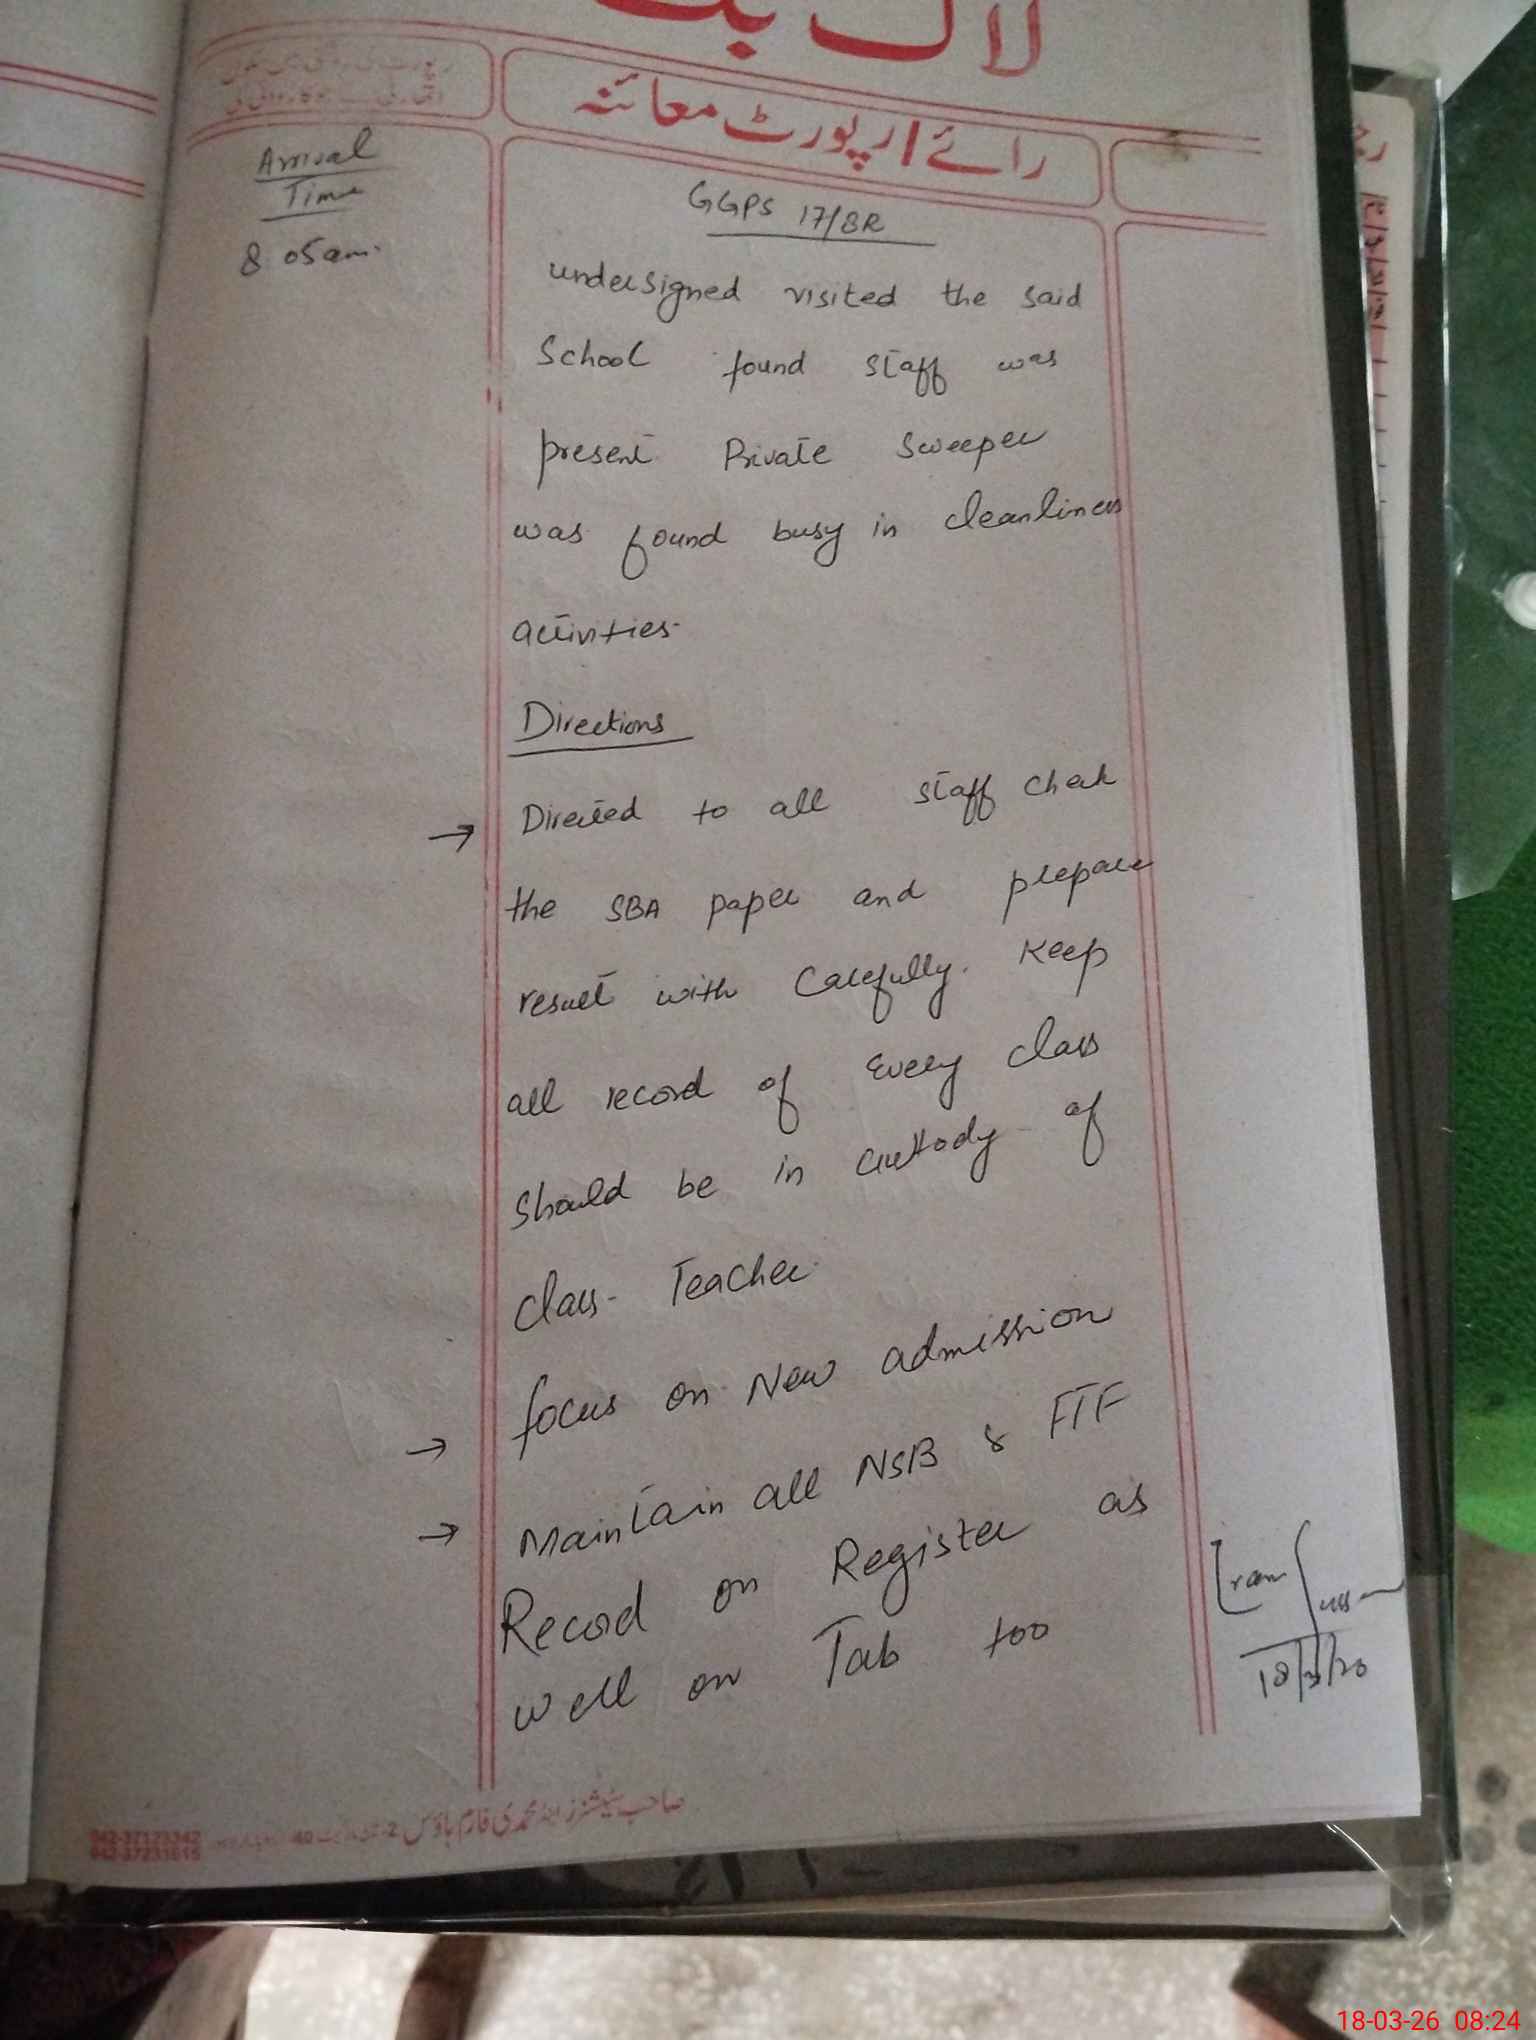 لاگ بک
رائے / رپورٹ معائنہ
Arrival
Time
8 05am.
GGPS 17/8R
undersigned visited the said
School found staff was
present Private Sweeper
was found busy in cleanliness
activities.
Directions
→ Directed to all staff check
the SBA paper and prepare
result with Carefully. Keep
all record of Every class
Should be in custody of
class. Teacher.
→ focus on New admission
→ Maintain all NSB & FTF
Record on Register as
well on Tab too
18/3/26
042-37123342
042-37231515
18-03-26 08:24